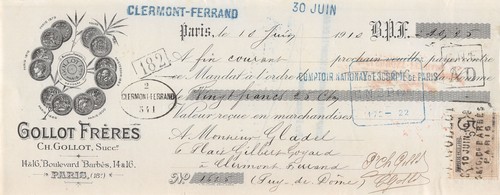 CLERMONT-FERRAND
30 JUIN
Paris, le 10 Juin 1910 B.P.F.
A fin courant prochain veuillez payer contre
ce Mandat à l'ordre
182
COMPTOIR NATIONAL D'ESCOMPTE DE PARIS
2
CLERMONT-FERRAND
541
Vingt francs 25 Cts
Valeur reçue en marchandises
GOLLOT FRÈRES
CH. GOLLOT, Succr.
14 & 16, Boulevard Barbès, 14 & 16.
PARIS, (18e)
A Monsieur Gladel
6 Place Gilbert Gogard
à Clermont Ferrand
No 1515 (Puy-de-Dôme)
10 JUIN
PARIS